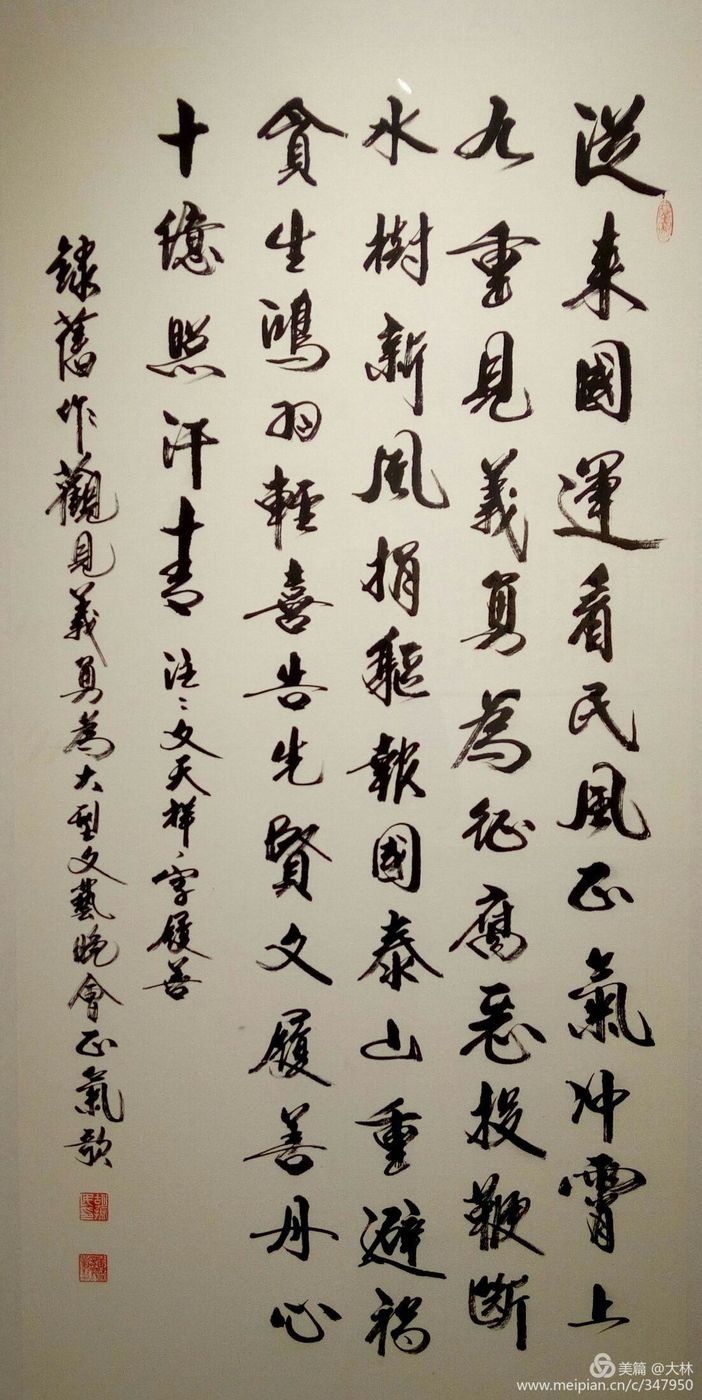 從来國運看民風正氣冲霄上
九重見義勇為征腐惡投鞭斷
水樹新風捐軀報國泰山重避禍
貪生鴻羽輕喜告先賢文履善丹心
十億照汗青注：文天祥字履善
錄舊作觀見義勇為大型文藝晚會正氣歌
美篇 @大林
www.meipian.cn/c/347950